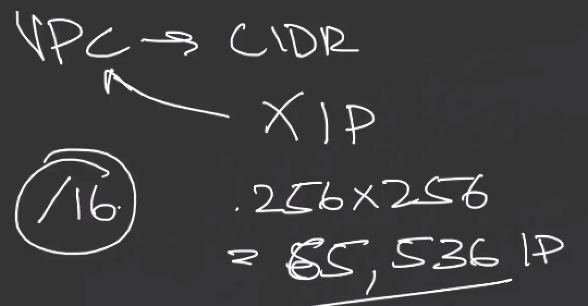 VPC → CIDR
X IP
/16.
.256×256
= 65,536 IP